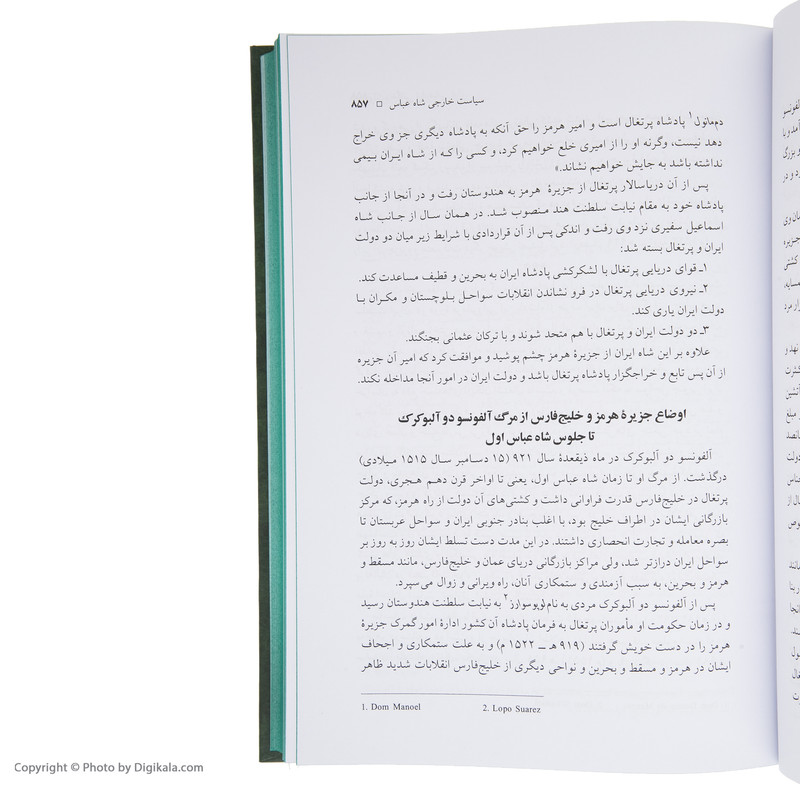 سیاست خارجی شاه عباس □ ۸۵۷
دم‌مانول۱ پادشاه پرتغال است و امیر هرمز را حق آنکه به پادشاه دیگری جز وی خراج
دهد نیست، وگرنه او را از امیری خلع خواهیم کرد، و کسی را که از شاه ایران بیمی
نداشته باشد به جایش خواهیم نشاند.»
پس از آن دریاسالار پرتغال از جزیرهٔ هرمز به هندوستان رفت و در آنجا از جانب
پادشاه خود به مقام نیابت سلطنت هند منصوب شد. در همان سال از جانب شاه
اسماعیل سفیری نزد وی رفت و اندکی پس از آن قراردادی با شرایط زیر میان دو دولت
ایران و پرتغال بسته شد:
۱ـ قوای دریایی پرتغال با لشکرکشی پادشاه ایران به بحرین و قطیف مساعدت کند.
۲ـ نیروی دریایی پرتغال در فرو نشاندن انقلابات سواحل بلوچستان و مکران با
دولت ایران یاری کند.
۳ـ دو دولت ایران و پرتغال با هم متحد شوند و با ترکان عثمانی بجنگند.
علاوه بر این شاه ایران از جزیرهٔ هرمز چشم پوشید و موافقت کرد که امیر آن جزیره
از آن پس تابع و خراجگزار پادشاه پرتغال باشد و دولت ایران در امور آنجا مداخله نکند.
اوضاع جزیرهٔ هرمز و خلیج‌فارس از مرگ آلفونسو دو آلبوکرک
تا جلوس شاه عباس اول
آلفونسو دو آلبوکرک در ماه ذیقعدهٔ سال ۹۲۱ (۱۵ دسامبر سال ۱۵۱۵ میلادی)
درگذشت. از مرگ او تا زمان شاه عباس اول، یعنی تا اواخر قرن دهم هجری، دولت
پرتغال در خلیج‌فارس قدرت فراوانی داشت و کشتی‌های آن دولت از راه هرمز، که مرکز
بازرگانی ایشان در اطراف خلیج بود، با اغلب بنادر جنوبی ایران و سواحل عربستان تا
بصره معامله و تجارت انحصاری داشتند. در این مدت دست تسلط ایشان روز به روز بر
سواحل ایران درازتر شد، ولی مراکز بازرگانی دریای عمان و خلیج‌فارس، مانند مسقط و
هرمز و بحرین، به سبب آزمندی و ستمکاری آنان، راه ویرانی و زوال می‌سپرد.
پس از آلفونسو دو آلبوکرک مردی به نام لوپوسوارز۲ به نیابت سلطنت هندوستان رسید
و در زمان حکومت او مأموران پرتغال به فرمان پادشاه آن کشور ادارهٔ امور گمرک جزیرهٔ
هرمز را در دست خویش گرفتند (۹۱۹ هـ ــ ۱۵۲۲ م) و به علت ستمکاری و اجحاف
ایشان در هرمز و مسقط و بحرین و نواحی دیگری از خلیج‌فارس انقلابات شدید ظاهر
1. Dom Manoel 2. Lopo Suarez
Copyright © Photo by Digikala.com